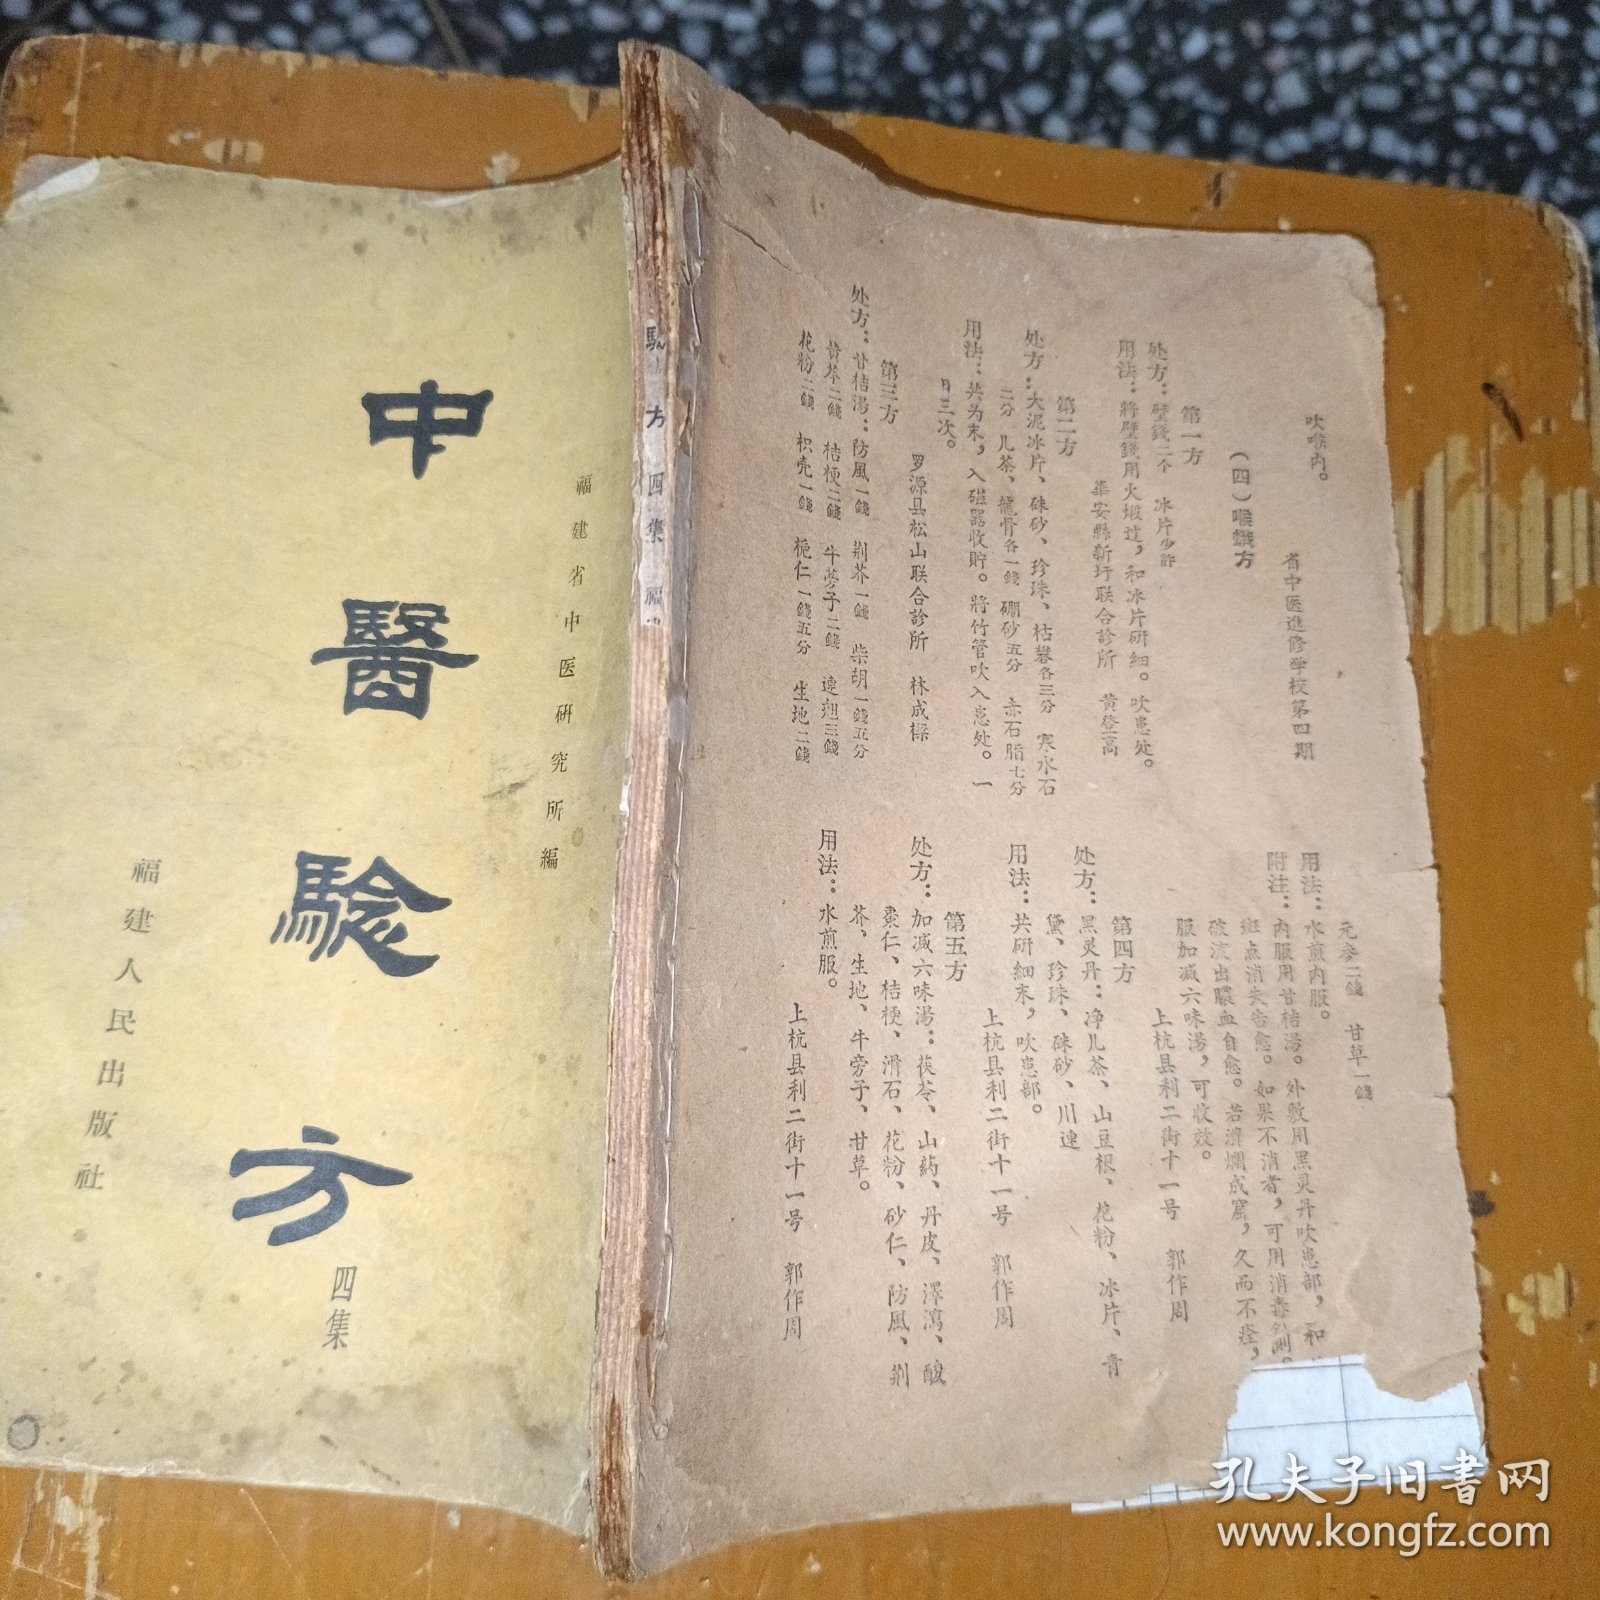 福建省中医研究所編
中醫驗方
四集
福建人民出版社
驗方 四集 福
吹喉内。
省中医進修学校第四期
(四)喉蛾方
第一方
处方:壁錢二个 冰片少許
用法:將壁錢用火煅过,和冰片研細。吹患处。
華安縣新圩联合診所 黄登高
第二方
处方:大泥冰片、硃砂、珍珠、枯礬各三分 寒水石
二分 儿茶、龍骨各一錢 硼砂五分 赤石脂七分
用法:共为末,入磁器收貯。將竹管吹入患处。一
日三次。
罗源县松山联合診所 林成樑
第三方
处方:甘桔湯:防風一錢 荆芥一錢 柴胡一錢五分
黄芩二錢 桔梗二錢 牛蒡子二錢 連翘三錢
花粉二錢 枳壳一錢 梔仁一錢五分 生地二錢
元参二錢 甘草一錢
用法:水煎内服。
附注:内服用甘桔湯。外敷用黑灵丹吹患部,和
斑点消失告愈。如果不消者,可用消毒針刺。
破流出膿血自愈。若潰爛成窟,久而不痊,
服加减六味湯,可收效。
上杭县利二街十一号 郭作周
第四方
处方:黑灵丹:净儿茶、山豆根、花粉、冰片、青
黛、珍珠、硃砂、川連
用法:共研細末,吹患部。
上杭县利二街十一号 郭作周
第五方
处方:加减六味湯:茯苓、山药、丹皮、澤瀉、酸
棗仁、桔梗、滑石、花粉、砂仁、防風、荆
芥、生地、牛旁子、甘草。
用法:水煎服。
上杭县利二街十一号 郭作周
孔夫子旧书网
www.kongfz.com